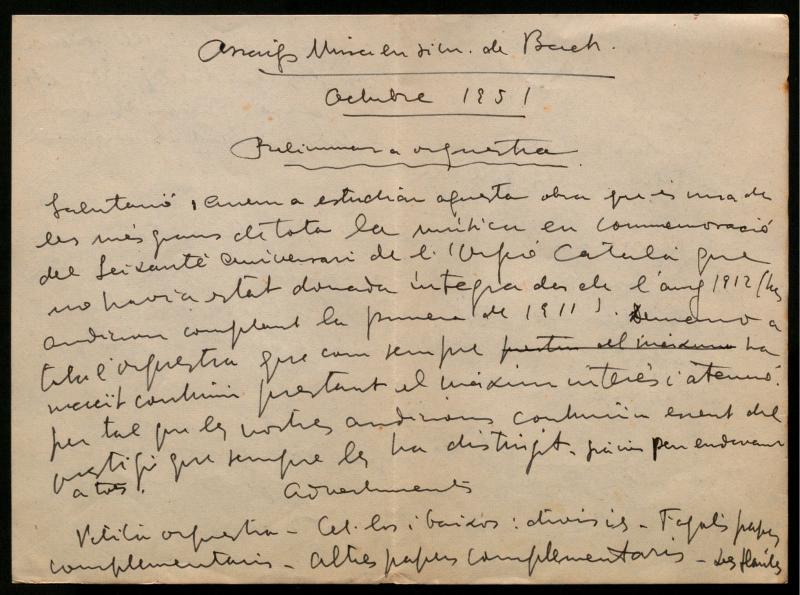 Assaigs Missa en si m. de Bach.
Octubre 1951
Preliminar a orquestra
Salutació, Anem a estudiar aquesta obra que és una de
les més grans de tota la música en commemoració
del Seixantè aniversari de l'Orfeó Català que
no havia estat donada íntegra des de l'any 1912 (tres
audicions comptant la primera de 1911). Demano a
tota l'orquestra que com sempre prestin el màximum ha
continuï prestant el màxim interès i atenció.
per tal que les nostres audicions continuïn essent del
prestigi que sempre les ha distingit. gràcies per endavant
a tots.
Advertiments
Petita orquestra - Cel·los i baixos: divisis - Fagots papers
complementaris - altres papers complementaris - Les flautes